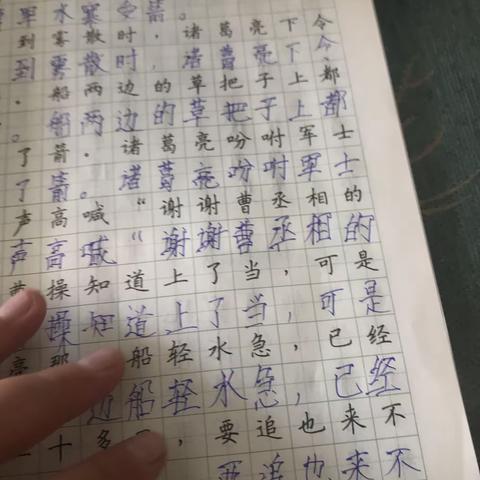 军水寨受箭。
到雾散时,诸葛亮下令
到雾散时,诸葛亮下令
。船两边的草把子上都
。船两边的草把子上都
了箭。诸葛亮吩咐军士
了箭。诸葛亮吩咐军士
声高喊“谢谢曹丞相的
声高喊“谢谢曹丞相的
操知道上了当,可是
操知道上了当,可是
亮那船轻水急,已经
边船轻水急,已经
二十多,要追也来不
要追也来不